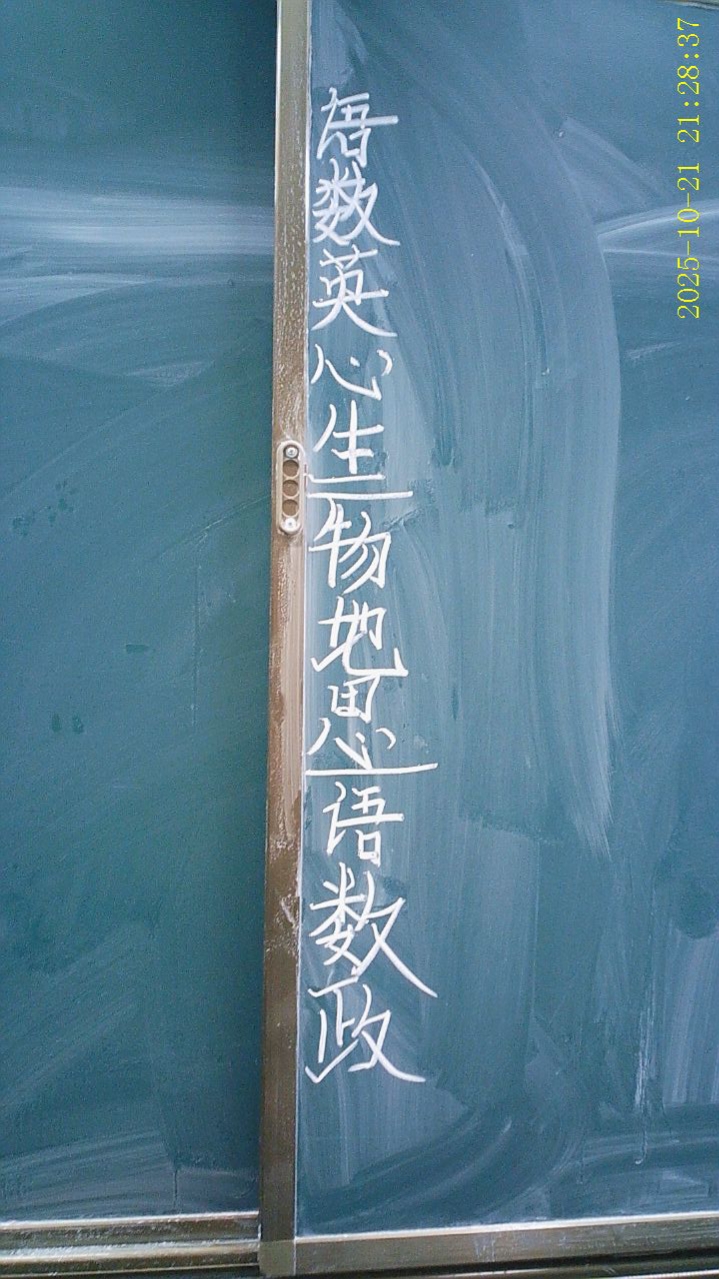 语数英心生物地思语数政
2025-10-21 21:28:37